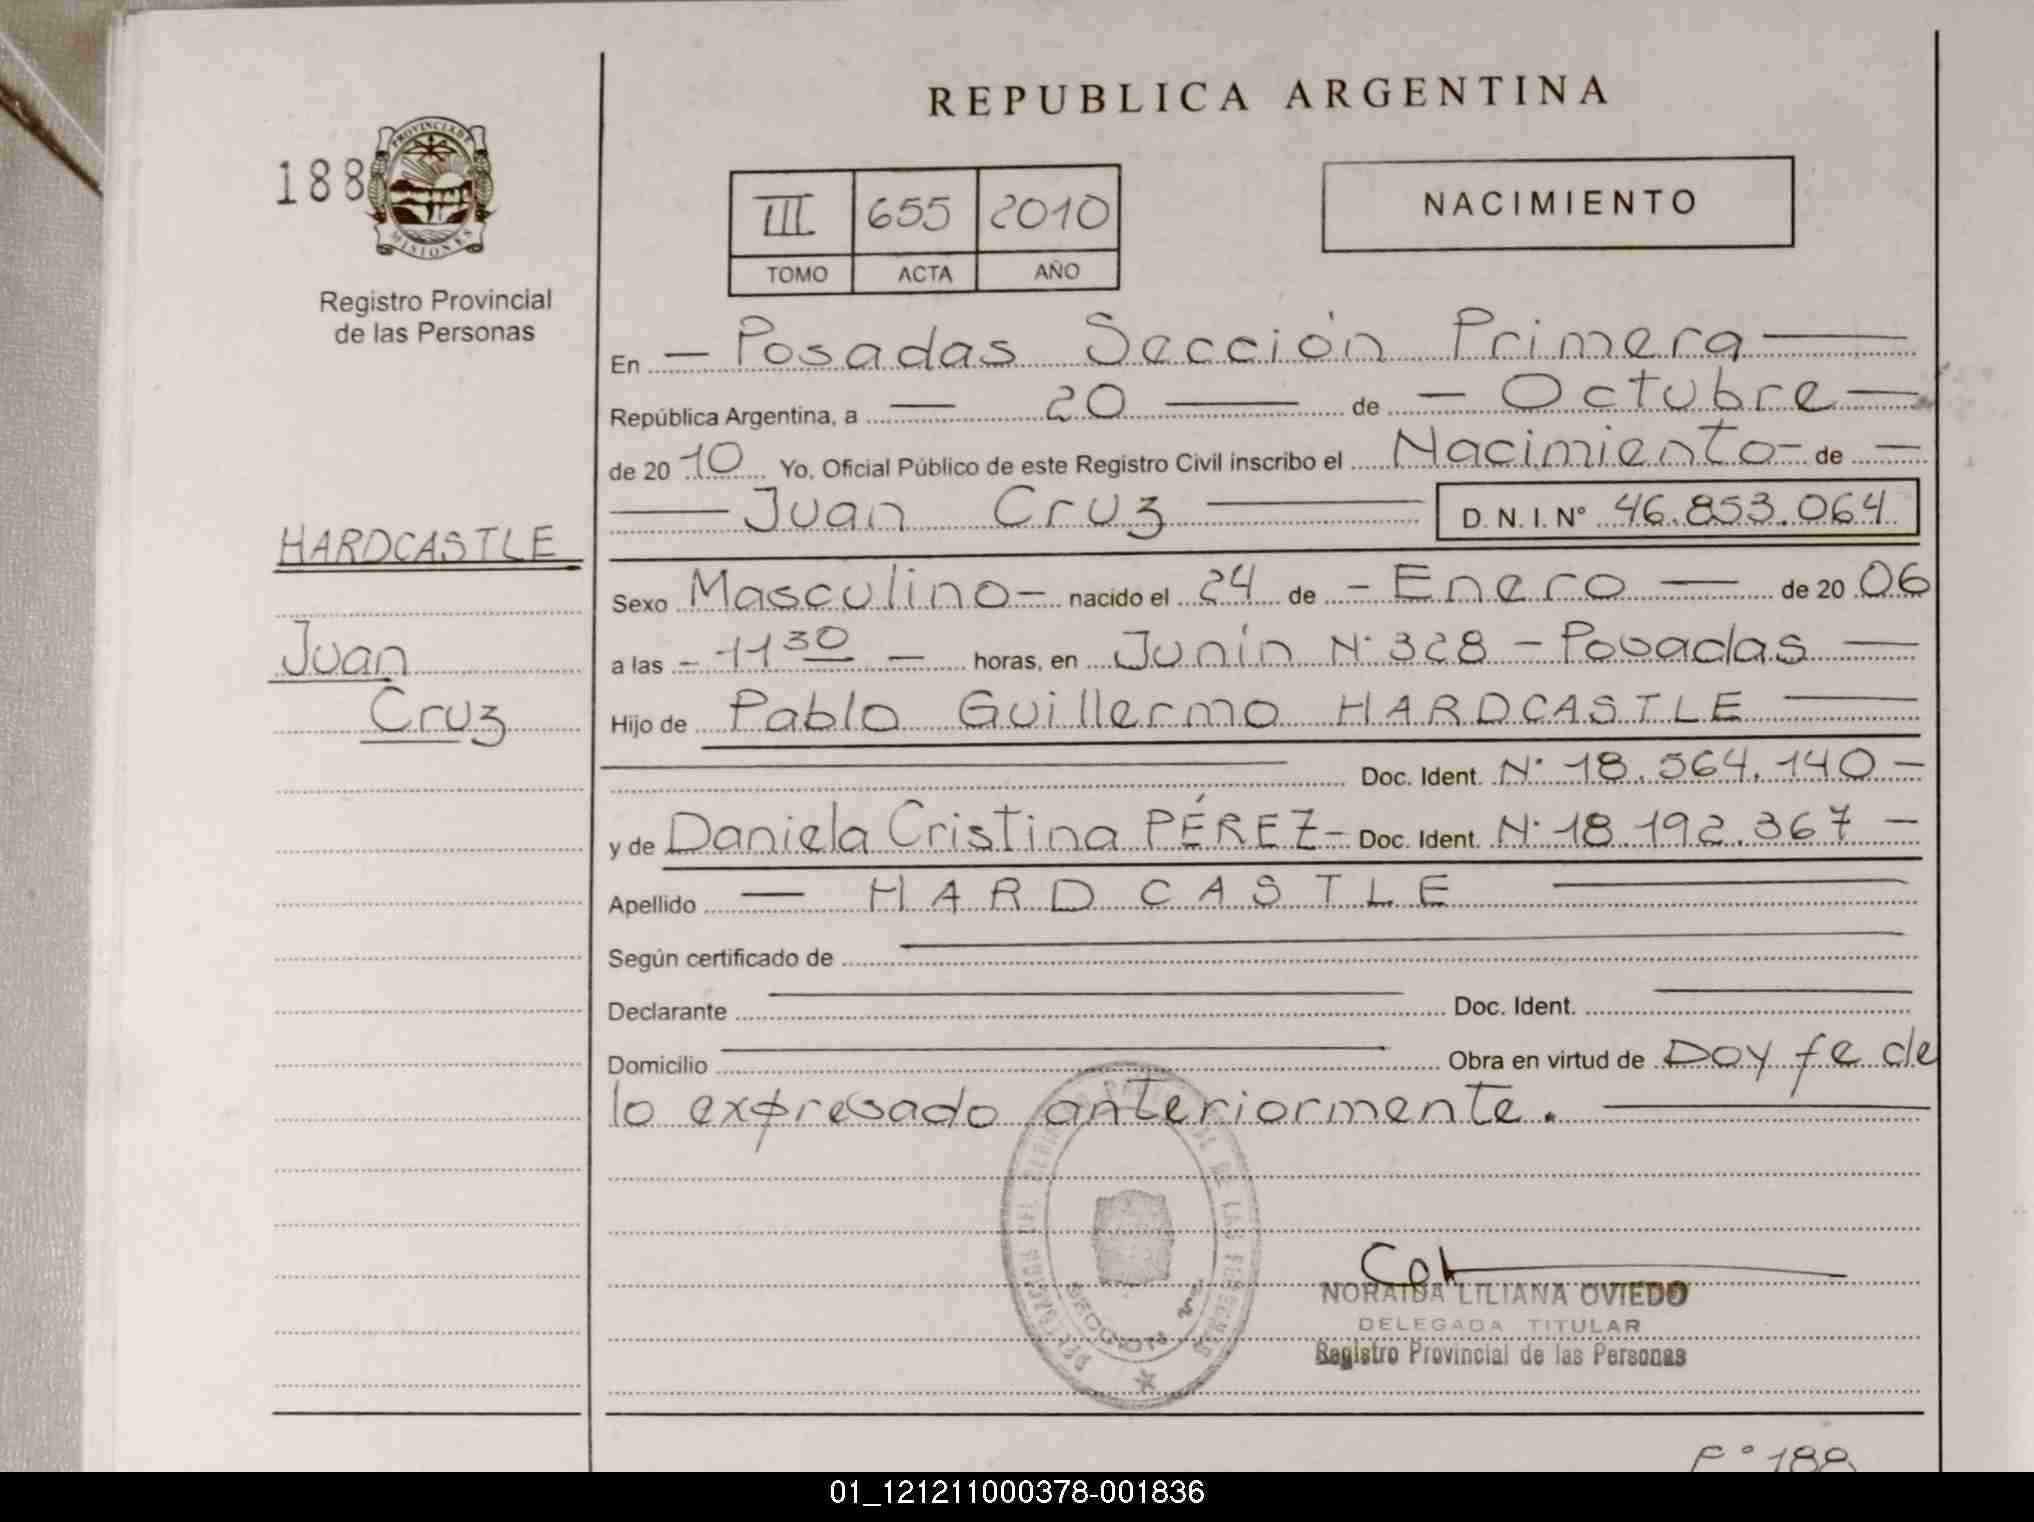 REPUBLICA ARGENTINA
188
PROVINCIA DE
MISIONES
Registro Provincial
de las Personas
III 655 2010
TOMO ACTA AÑO
NACIMIENTO
HARDCASTLE
Juan
Cruz
En — Posadas Sección Primera —
República Argentina, a — 20 — de — Octubre —
de 20 10 Yo, Oficial Público de este Registro Civil inscribo el Nacimiento - de —
— Juan Cruz — D. N. I. Nº 46.853.064
Sexo Masculino - nacido el 24 de - Enero — de 20 06
a las - 11 30 — horas, en Junín Nº 328 - Posadas —
Hijo de Pablo Guillermo HARDCASTLE —
Doc. Ident. Nº 18.564.140 -
y de Daniela Cristina PÉREZ - Doc. Ident. Nº 18.192.367 -
Apellido — HARDCASTLE —
Según certificado de —
Declarante — Doc. Ident. —
Domicilio — Obra en virtud de Doy fe de
lo expresado anteriormente. —
SECCION
NORAIDA LILIANA OVIEDO
DELEGADA TITULAR
Registro Provincial de las Personas
Fº 188
01_121211000378-001836